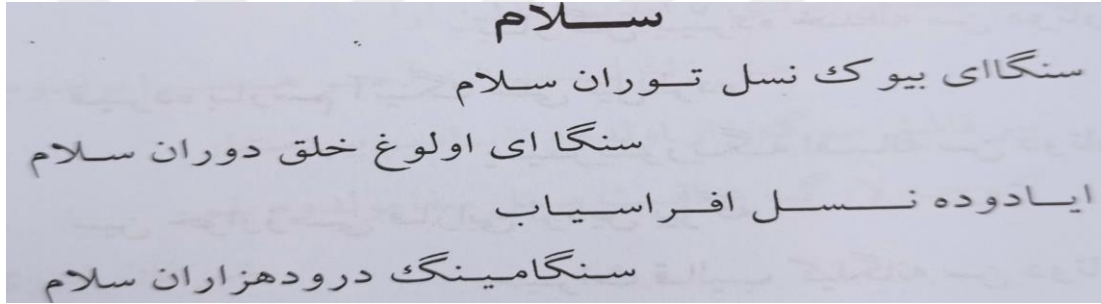 ســلام
سنگاای بیوک نسل تــوران سـلام
سنگا ای اولوغ خلق دوران سـلام
ایــادوده نــســل افــراسـیــاب
سـنگامـینگ درودهزاران سلام